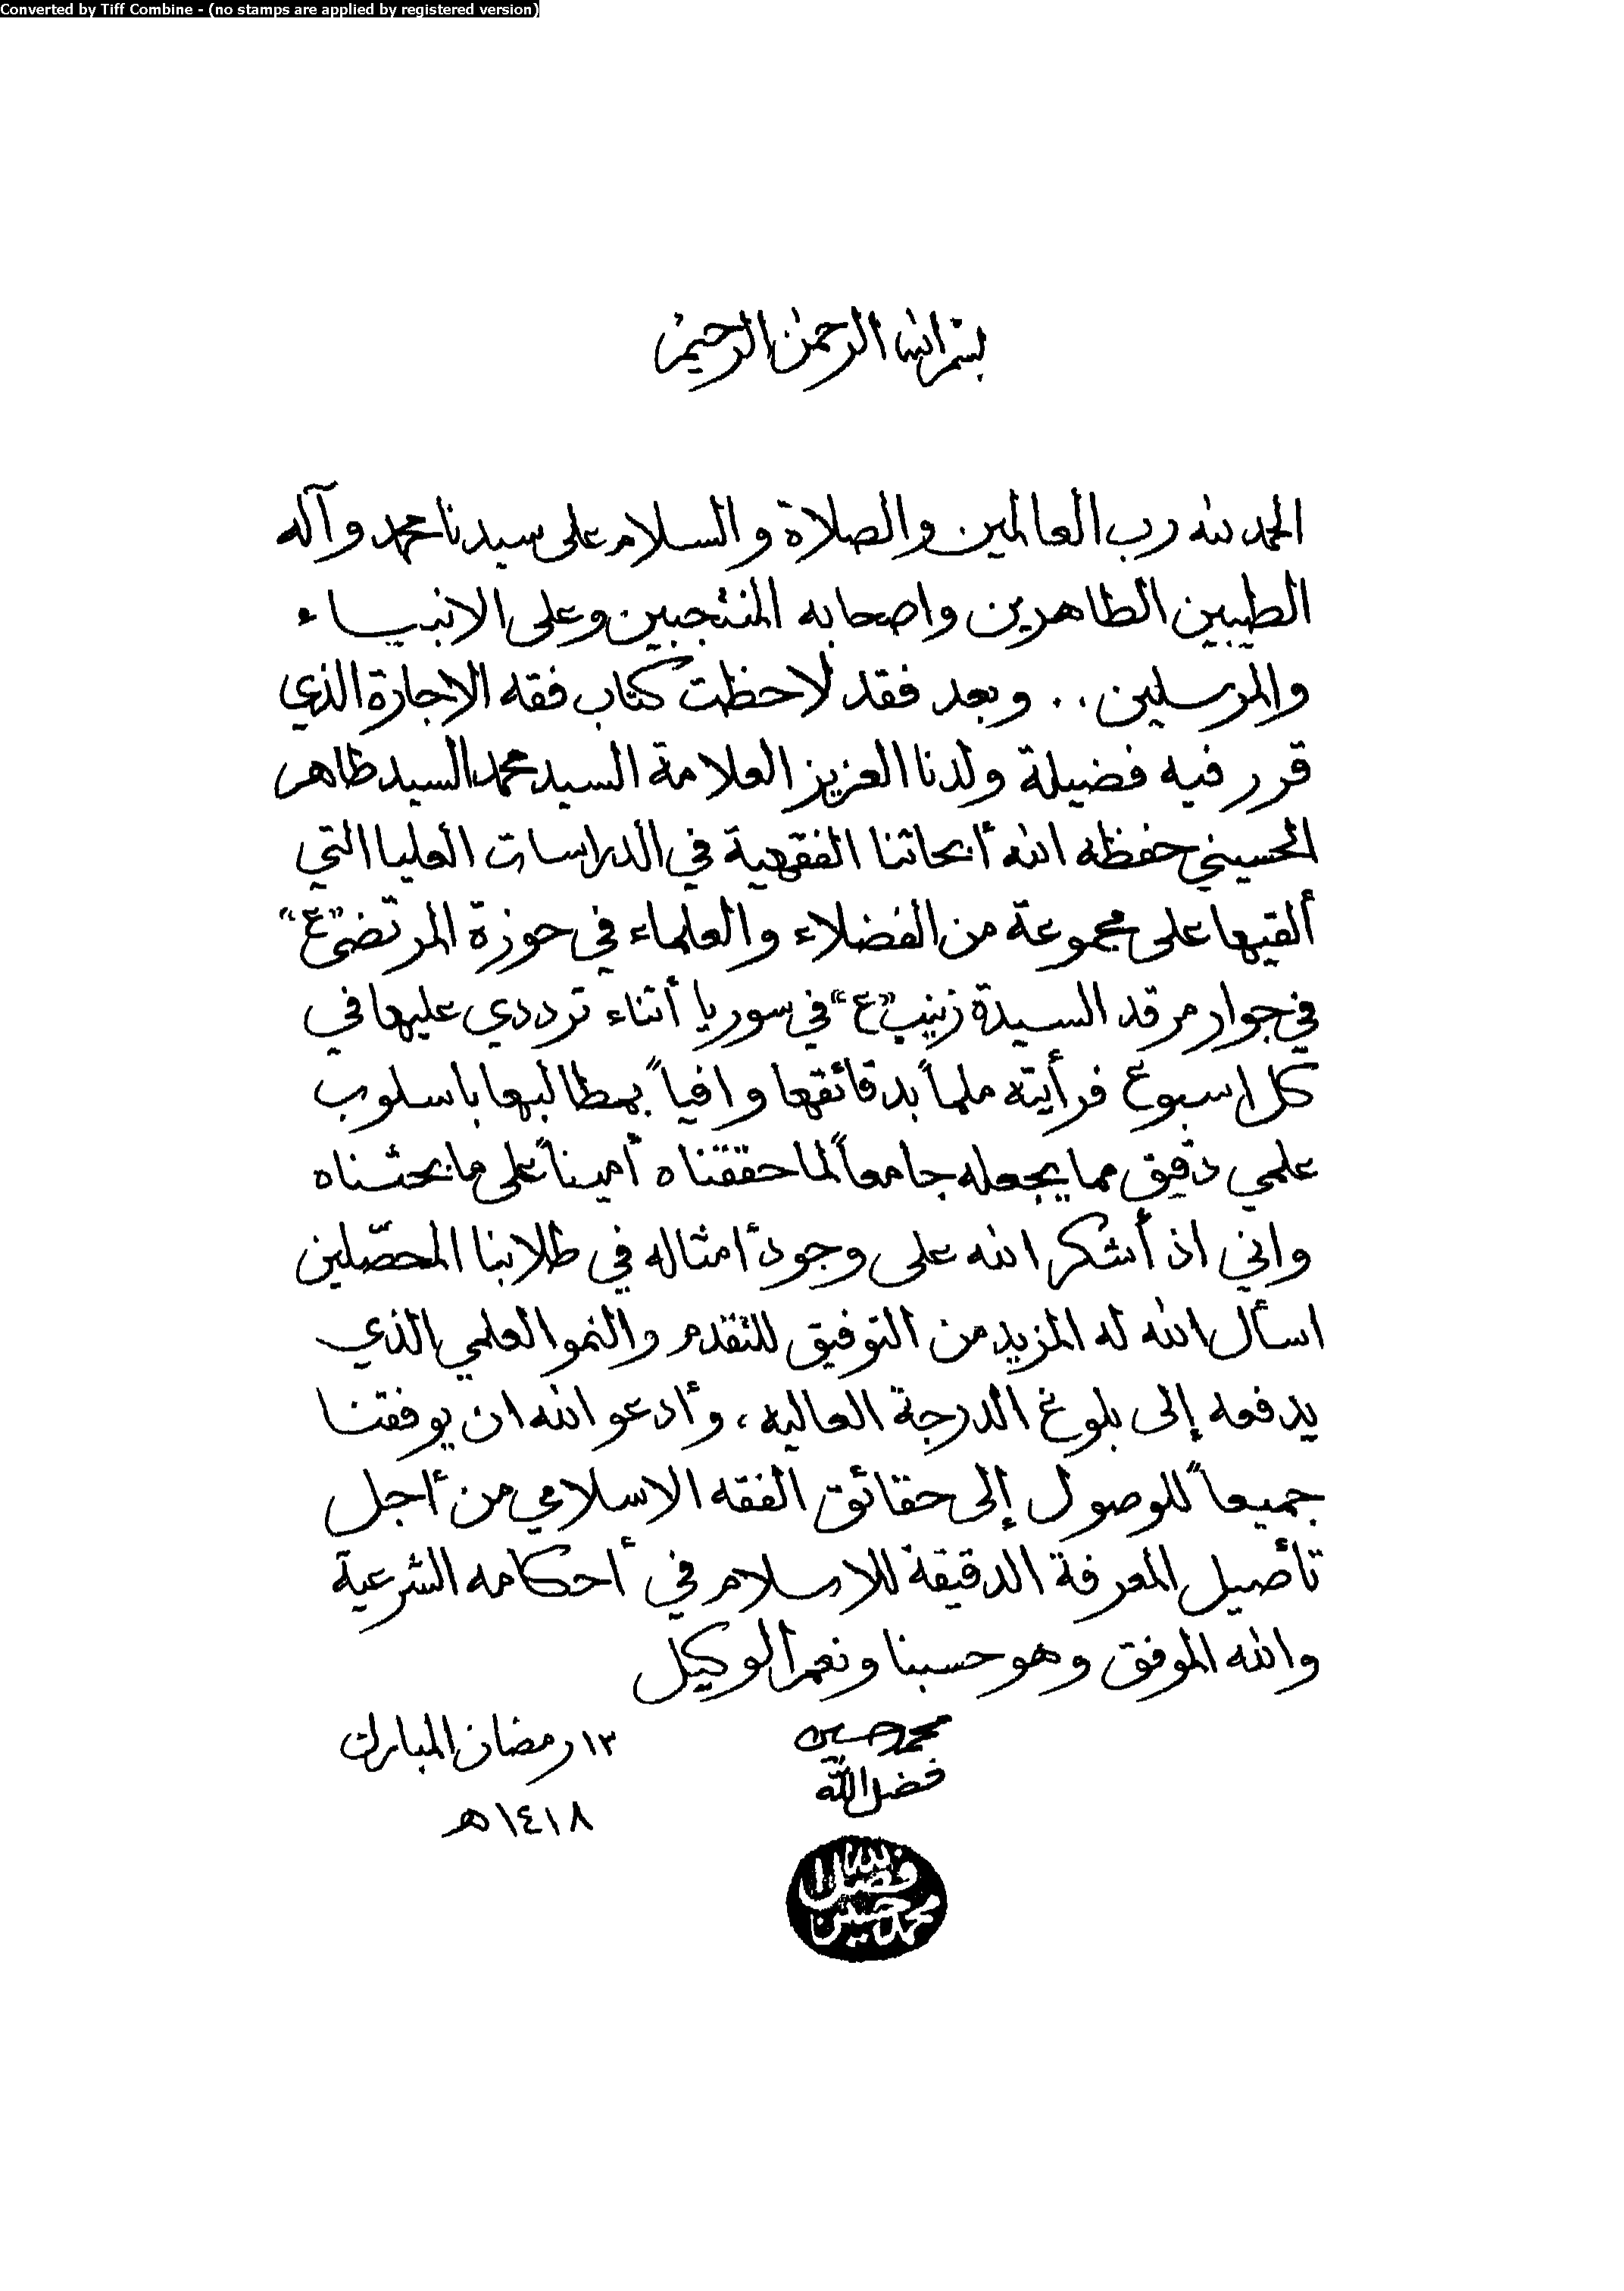 Converted by Tiff Combine - (no stamps are applied by registered version)
بسم الله الرحمن الرحيم
الحمد لله رب العالمين والصلاة والسلام على سيدنا محمد وآله
الطيبين الطاهرين واصحابه المنتجبين وعلى الانبياء
والمرسلين .. وبعد فقد لاحظت كتاب فقه الاجارة الذي
قرر فيه فضيلة ولدنا العزيز العلامة السيد محمد السيد طاهر
الحسيني حفظه الله أبحاثنا الفقهية في الدراسات العليا التي
ألقيها على مجموعة من الفضلاء والعلماء في حوزة المرتضى "ع"
في جوار مرقد السيدة زينب "ع" في سوريا أثناء ترددي عليها في
كل اسبوع فرأيته ملماً بدقائقها وافياً بمطالبها باسلوب
علمي دقيق مما يجعله جامعاً لما حققناه أميناً على ما بحثناه
واني اذ أشكر الله على وجود أمثاله في طلابنا المحصّلين
اسأل الله له المزيد من التوفيق للتقدم والنمو العلمي الذي
يدفعه إلى بلوغ الدرجة العاليه ، وأدعو الله ان يوفقنا
جميعاً للوصول إلى حقائق الفقه الاسلامي من أجل
تأصيل المعرفة الدقيقة للاسلام في أحكامه الشرعية
والله الموفق وهو حسبنا ونعم الوكيل
محمد حسين
فضل الله
١٣ رمضان المبارك
١٤١٨هـ
محمد حسين فضل الله